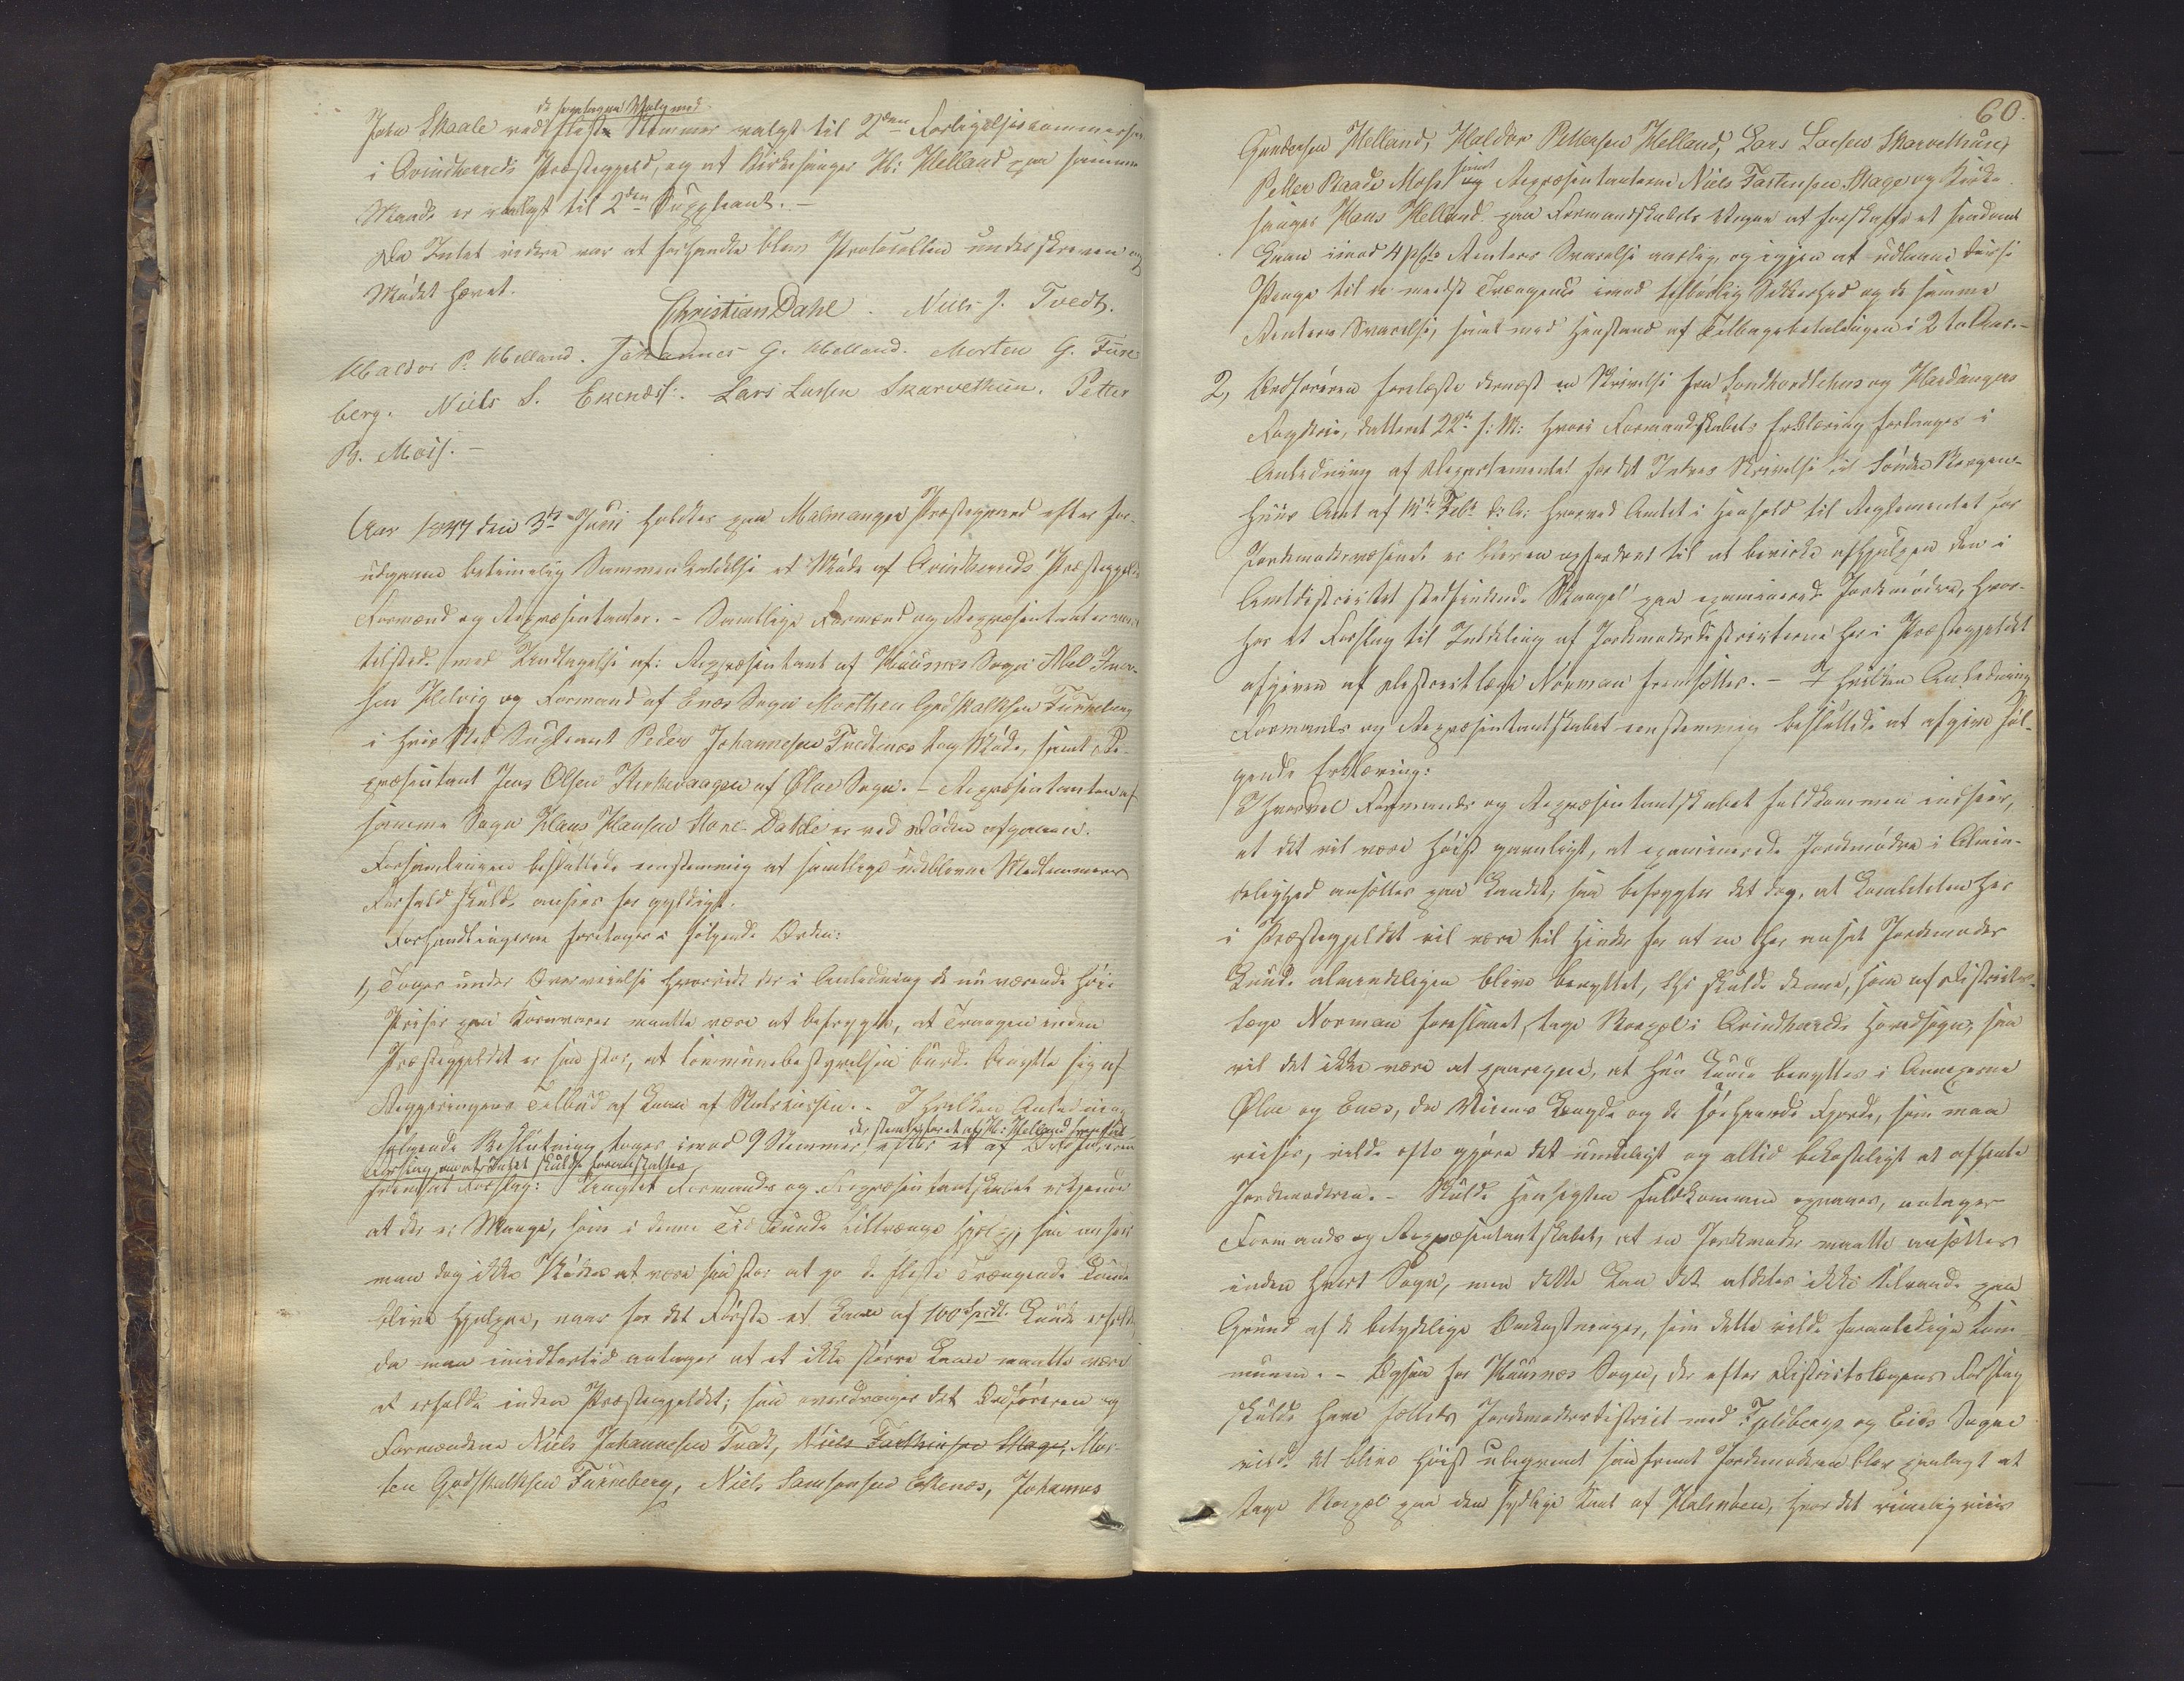 de foretagne Valg med
John Skaale ved fleste Stemmer valgt til 2den Forligelsescommissær
i Qvindherreds Præstegjeld, og at Kirkesanger H: Helland paa samme
Maade er valgt til 2den Suppleant. –
Da Intet videre var at forhandle blev Protocollen underskreven og
Mødet hævet.
Christian Dahl. Niels J. Tvedt.
Haldor P. Helland. Johannes G. Helland. Morten G. Furre-
berg. Niels S. Eknæs. Lars Larsen Skarvethun. Petter
B. Moss. –
Aar 1847 den 3die Juni holdtes paa Malmanger Præstegaard efter for-
udgaaen betimelig Sammenkaldelse et Møde af Qvindherreds Præstegjelds
Formænd og Repræsentanter. – Samtlige Formænd og Repræsentanter vare
tilstede med Undtagelse af: Repræsentant af Huusnæs Sogn Abel Iver-
sen Helvig og Formand af Enæs Sogn Morthen Godskalksen Furreberg
i hvis Sted Suppleant Peder Johannesen Tvedtnæs tog Møde, samt Re-
præsentant Jens Olsen Kirkevaagen af Ølve Sogn. – Repræsentanten af
samme Sogn Klaus Hansen Store-Dahle er ved Døden afgaaen.
Forsamlingen besluttede eenstemmig at samtlige udeblevne Medlemmers
Forfald skulde ansees for gyldigt.
Forhandlingerne foretoges i følgende Orden:
1, Toges under Overveielse hvorvidt der i Anledning de nuværende høie
Priser paa Kornvarer maatte være at befrygte, at Trangen inden
Præstegjeldet er saa stor, at Communebestyrelsen burde benytte sig af
Regjeringens Tilbud af Laan af Statskassen. – I hvilken Anledning
følgende Beslutning toges imod 9 Stemmer, der stemte for et af H: Helland fremsat
Forslag om at Intet skulde foranstaltes, efter et af Ordføreren
fremsat Forslag: Saavidt Formands og Repræsentantskabet erkjende
at der er Mange, som i denne Tid kunde tiltrænge Hjelp, saa anseer
man dog ikke Nøden at være saa stor at jo de fleste Trængende kunde
blive hjulpne, naar for det Første et Laan af 100 Spd. kunde erholdes,
da man imidlertid antager at et ikke større Laan maatte være
at erholde inden Præstegjeldet; saa overdrages det Ordføreren og
Formændene Niels Johannesen Tvedt, Niels Tarthinsen Skage, Mor-
ten Godskalksen Furreberg, Niels Samsonsen Eknæs, Johannes
60.
Gundersen Helland, Haldor Pettersen Helland, Lars Larsen Skarvethun,
Petter Baade Moss samt og Repræsentanterne Niels Tartinsen Skage og Kirke-
sanger Hans Helland paa Formandskabets Vegne at forskaffe et saadant
Laan imod 4 pCto Renters Svarelse aarlig, og igjen at udlaane disse
Penge til de meest Trængende imod tilbørlig Sikkerhed og de samme
Renters Svarelse, samt med Henstand af Tilbagebetalingen i 2 to Aar. –
2, Ordføreren forelæste dernæst en Skrivelse fra Søndhordlehns og Hardangers
Fogderie, datteret 22de f: M: hvori Formandskabets Erklæring forlanges i
Anledning af Departementet for det Indres Skrivelse til Søndre Bergen-
huus Amt af 14de Febr. d: A: hvorved Amtet i Henhold til Reglementet for
Jordemodervæsenet er bleven opfordret til at bevirke afhjulpen den i
Amtdistrictet stedfindende Mangel paa examinerede Jordemødre, hvor-
hos et Forslag til Inddeling af Jordemoderdistricterne her i Præstegjeldet
afgiven af Districtslæge Norman fremsættes. – I hvilken Anledning
Formands og Repræsentantskabet eenstemmig besluttede at afgive føl-
gende Erklæring:
Ihvorvel Formands og Repræsentantskabet fuldkommen indseer,
at det vil være høist gavnligt, at examinerede Jordemødre i Almin-
delighed ansættes paa Landet, saa befrygter det dog, at Localiteten her
i Præstegjeldet vil være til Hinder for at en her ansat Jordemoder
kunde almindeligen blive benyttet, thi skulde denne, som af Districts-
læge Norman foreslaaet, tage Bopæl i Qvindherreds Hovedsogn, saa
vil det ikke være at paaregne, at hun kunde benyttes i Annexerne
Ølve og Enæs, da Veiens Længde og de søehaarde Fjorde, som maa
reises, vilde ofte gjøre det umueligt og altid bekosteligt at afhente
Jordemoderen. – Skulde Hensigten fuldkommen opnaaes, antager
Formands og Repræsentantskabet, at en Jordemoder maatte ansættes
inden hvert Sogn, men dette kan det aldeles ikke tilraade paa
Grund af de betydelige Omkostninger, som dette vilde foranledige Com-
munen. – Ogsaa for Huusnæs Sogn, der efter Districtslægens Forslag
skulde have fælleds Jordemoderdistrict med Fjeldbergs og Eids Sogne
vilde det blive høist ubeqvemt saafremt Jordemoderen blev paalagt at
tage Bopæl paa den sydlige Kant af Halsnøen, hvor det rimeligviis